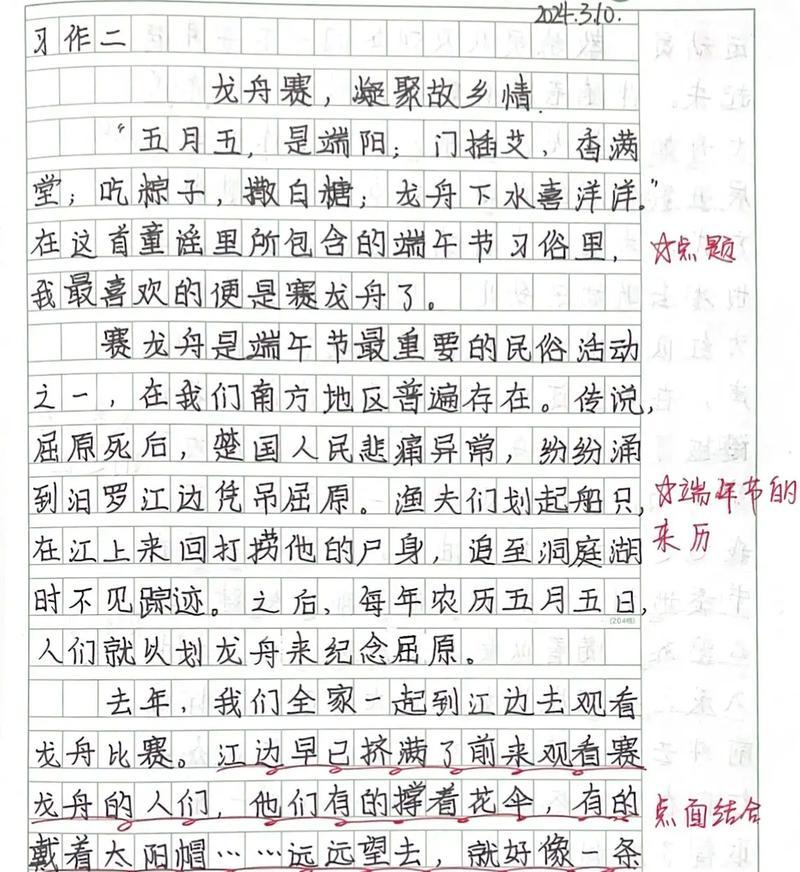 2024.3.10.
习作二
龙舟赛，凝聚故乡情.
“五月五，是端阳；门插艾，香满
堂；吃粽子，撒白糖；龙舟下水喜洋洋。”
在这首童谣里所包含的端午节习俗里，
☆点题
我最喜欢的便是赛龙舟了。
赛龙舟是端午节最重要的民俗活动
之一，在我们南方地区普遍存在。传说，
屈原死后，楚国人民悲痛异常，纷纷涌
到汨罗江边凭吊屈原。渔夫们划起船只，
☆端午节的
来历
在江上来回打捞他的尸身，追至洞庭湖
时不见踪迹。之后，每年农历五月五日，
(204格)
人们就以划龙舟来纪念屈原。
去年，我们全家一起到江边去观看
龙舟比赛。江边早已挤满了前来观看赛
龙舟的人们，他们有的撑着花伞，有的
点面结合
戴着太阳帽……远远望去，就好像一条